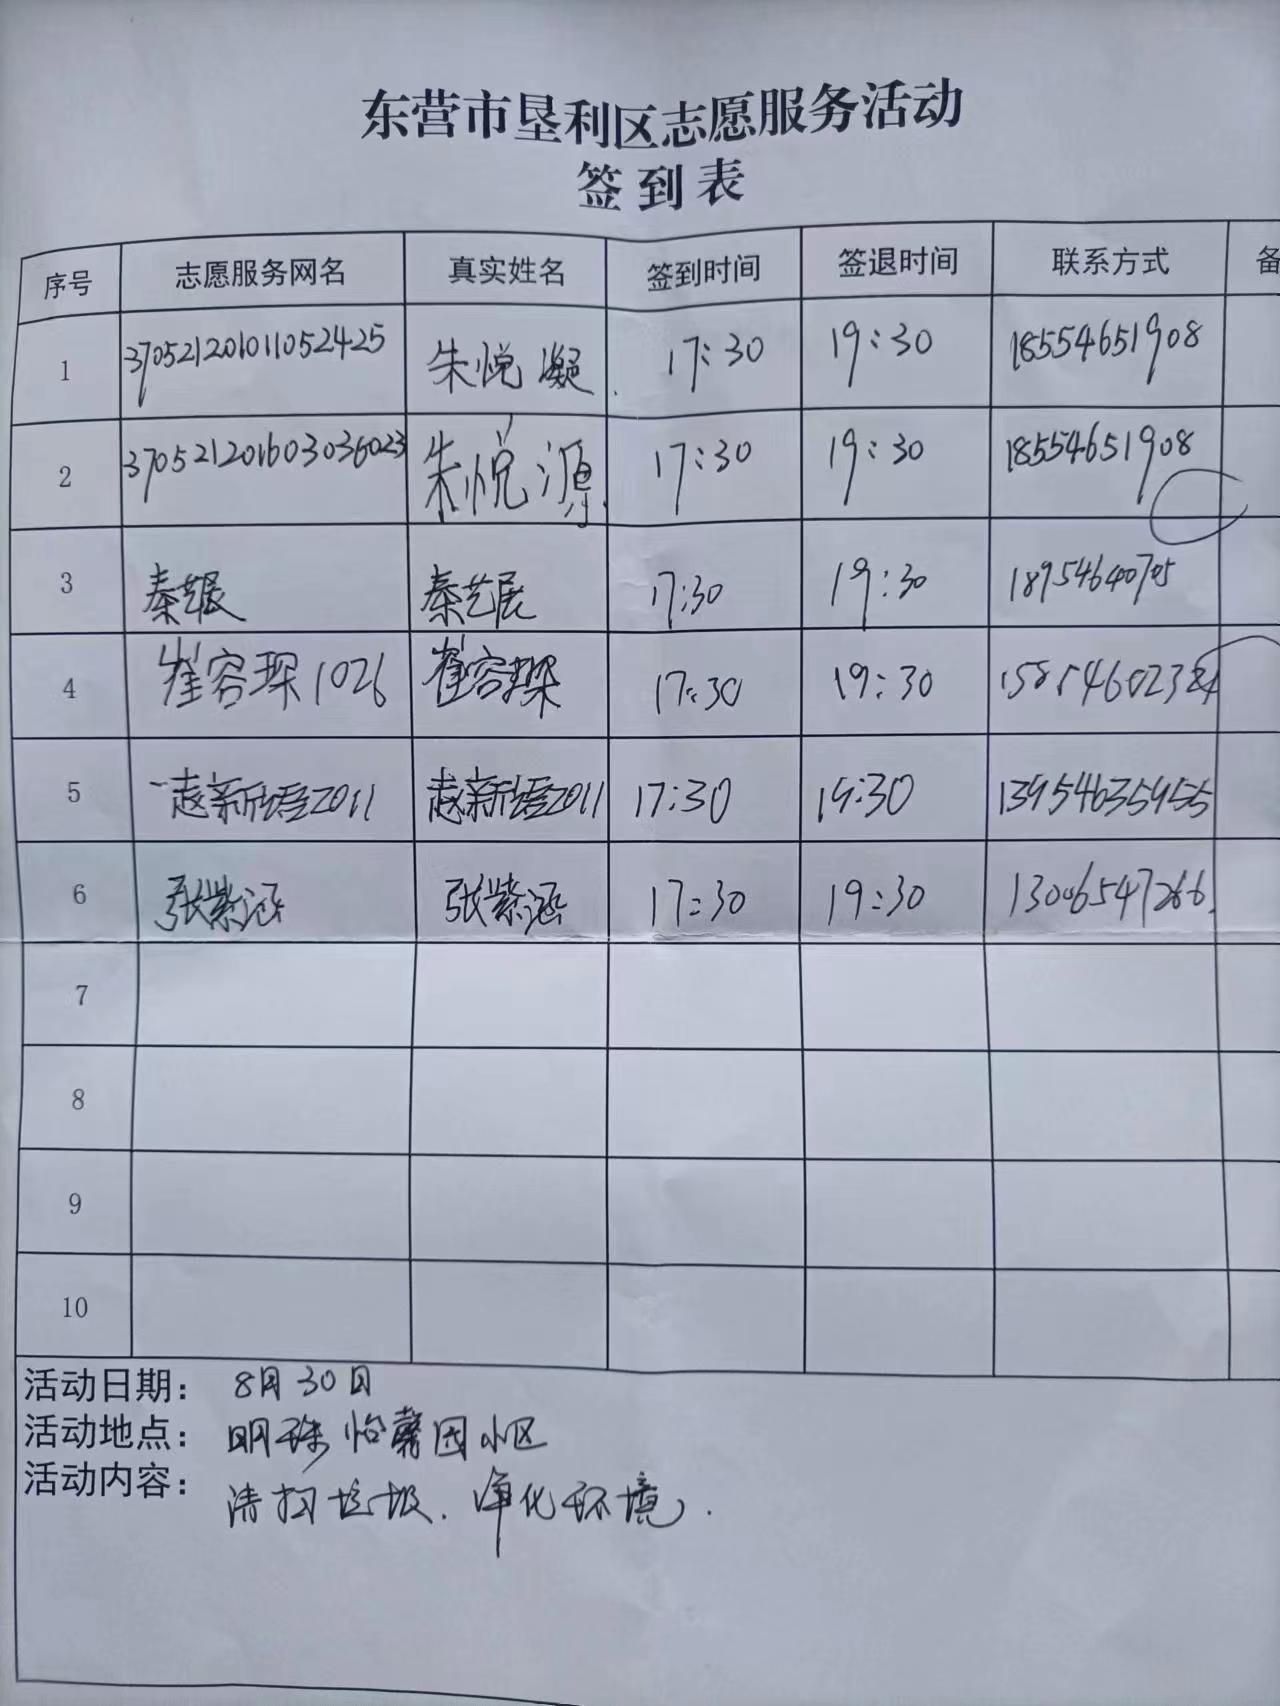 东营市垦利区志愿服务活动
签到表
序号 志愿服务网名 真实姓名 签到时间 签退时间 联系方式 备
1 370521201011052425 朱悦凝 17:30 19:30 18554651908
2 370521201603036023 朱悦源 17:30 19:30 18554651908
3 秦艺展 秦艺展 17:30 19:30
4 崔容琛1026 崔容琛 17:30 19:30
5 赵新语2011 赵新语2011 17:30 19:30 13954635955
6 张紫涵 张紫涵 17:30 19:30 13006547266
7
8
9
10
活动日期： 8月30日
活动地点： 明珠怡馨园小区
活动内容： 清扫垃圾.净化环境.